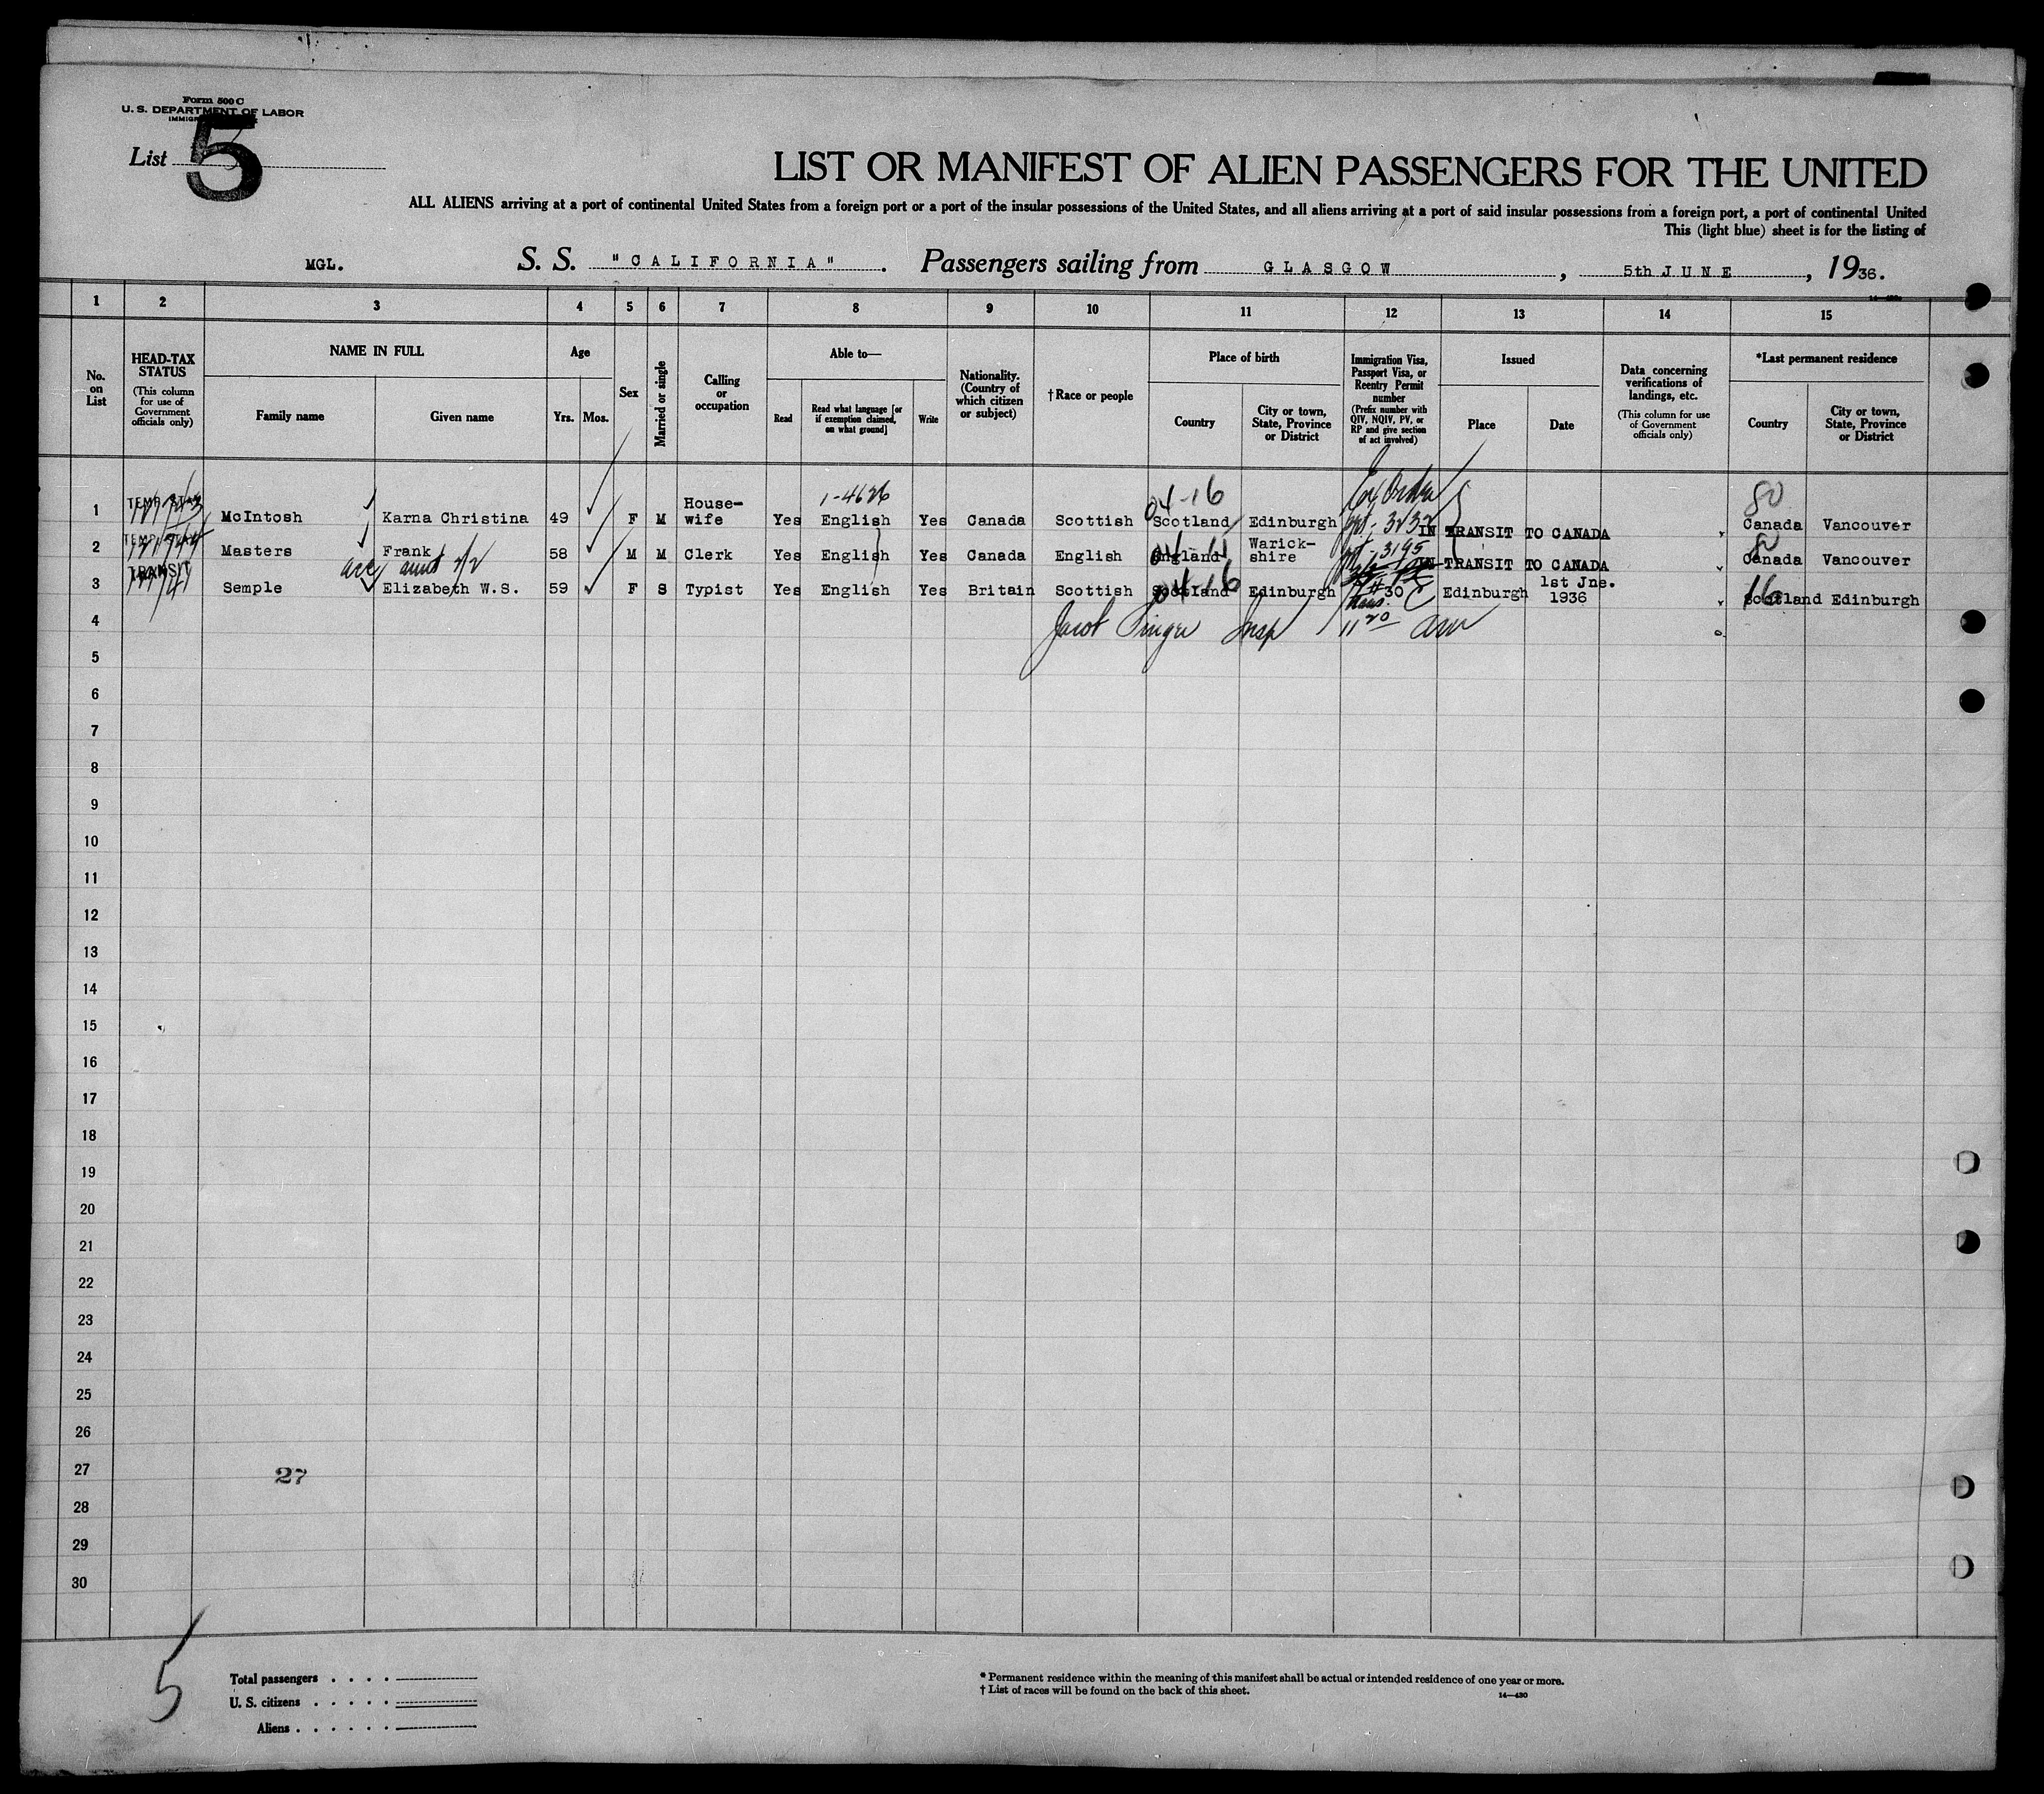 Form 500 C
U. S. DEPARTMENT OF LABOR
List 5
LIST OR MANIFEST OF ALIEN PASSENGERS FOR THE UNITED
ALL ALIENS arriving at a port of continental United States from a foreign port or a port of the insular possessions of the United States, and all aliens arriving at a port of said insular possessions from a foreign port, a port of continental United
This (light blue) sheet is for the listing of
MGL. S. S. "CALIFORNIA" . Passengers sailing from GLASGOW , 5th JUNE , 1936.
1 2 3 4 5 6 7 8 9 10 11 12 13 14 15
No. on List
HEAD-TAX STATUS
(This column for use of Government officials only)
NAME IN FULL
Family name Given name
Age
Yrs. Mos.
Sex
Married or single
Calling or occupation
Able to—
Read Read what language [or if exemption claimed, on what ground] Write
Nationality. (Country of which citizen or subject)
†Race or people
Place of birth
Country City or town, State, Province or District
Immigration Visa, Passport Visa, or Reentry Permit number
(Prefix number with QIV, NQIV, PV, or RP and give section of act involved)
Issued
Place Date
Data concerning verifications of landings, etc.
(This column for use of Government officials only)
*Last permanent residence
Country City or town, State, Province or District
1-4626 04-16 80
1 McIntosh Karna Christina 49 F M House-wife Yes English Yes Canada Scottish Scotland Edinburgh 3232 IN TRANSIT TO CANADA Canada Vancouver
2 Masters Frank 58 M M Clerk Yes English Yes Canada English England Warick-shire 3195 IN TRANSIT TO CANADA Canada Vancouver
TRANSIT
3 Semple Elizabeth W.S. 59 F S Typist Yes English Yes Britain Scottish Scotland Edinburgh #30 Edinburgh 1st Jne. 1936 Scotland Edinburgh
04-16 16
4 Jacob Singer Insp
5
6
7
8
9
10
11
12
13
14
15
16
17
18
19
20
21
22
23
24
25
26
27 27
28
29
30
5
Total passengers . . . .
U. S. citizens . . . . .
Aliens . . . . . .
* Permanent residence within the meaning of this manifest shall be actual or intended residence of one year or more.
† List of races will be found on the back of this sheet.
14—430